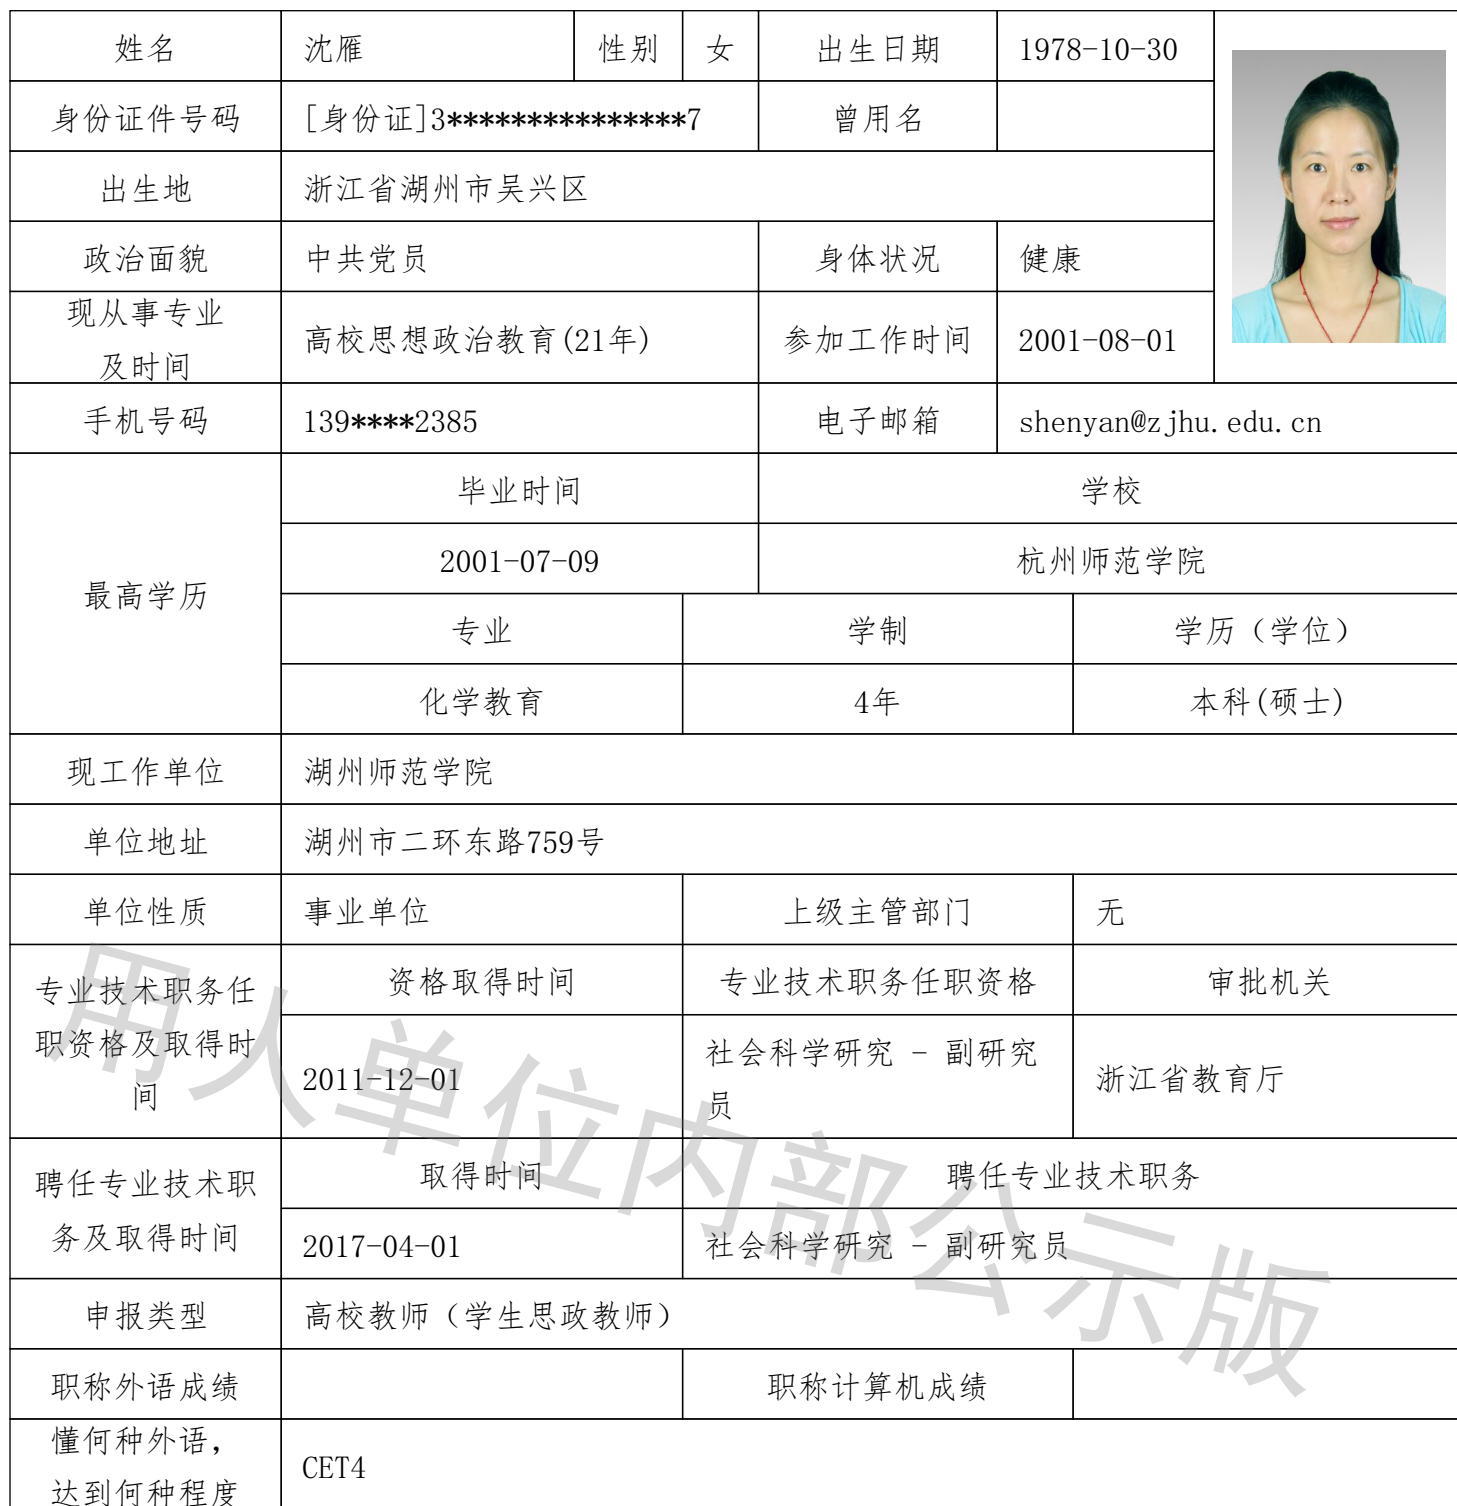 姓名 沈雁 性别 女 出生日期 1978-10-30
身份证件号码 [身份证]3***************7 曾用名
出生地 浙江省湖州市吴兴区
政治面貌 中共党员 身体状况 健康
现从事专业
及时间 高校思想政治教育(21年) 参加工作时间 2001-08-01
手机号码 139****2385 电子邮箱 shenyan@zjhu.edu.cn
最高学历
毕业时间 学校
2001-07-09 杭州师范学院
专业 学制 学历（学位）
化学教育 4年 本科(硕士)
现工作单位 湖州师范学院
单位地址 湖州市二环东路759号
单位性质 事业单位 上级主管部门 无
专业技术职务任
职资格及取得时
间
资格取得时间 专业技术职务任职资格 审批机关
2011-12-01 社会科学研究 - 副研究
员 浙江省教育厅
聘任专业技术职
务及取得时间
取得时间 聘任专业技术职务
2017-04-01 社会科学研究 - 副研究员
申报类型 高校教师（学生思政教师）
职称外语成绩 职称计算机成绩
懂何种外语，
达到何种程度 CET4
用人单位内部公示版